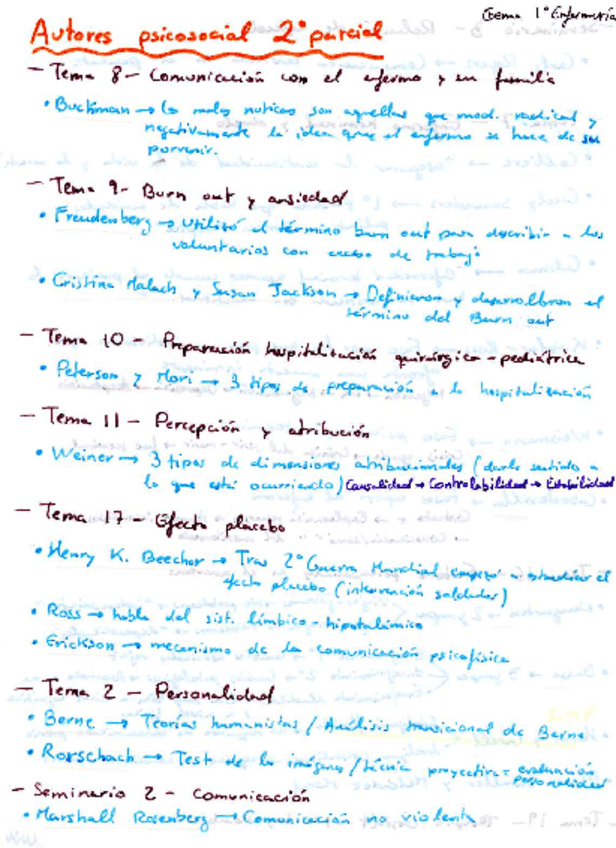 Gema 1º Enfermería
Autores psicosocial 2º parcial
- Tema 8 - Comunicación con el enfermo y su familia
• Buckman → las malas noticias son aquellas que mod. radical y
negativamente la idea que el enfermo se hace de su
porvenir.
- Tema 9 - Burn out y ansiedad
• Freudenberg → utilizó el término burn out para describir a los
voluntarios con exceso de trabajo
• Cristina Malach y Susan Jackson → Definieron y desarrollaron el
término del Burn out
- Tema 10 - Preparación hospitalización quirúrgica - pediátrica
• Peterson y Mori → 3 tipos de preparación a la hospitalización
- Tema 11 - Percepción y atribución
• Weiner → 3 tipos de dimensiones atribucionales (darle sentido a
lo que está ocurriendo) Causalidad → Controlabilidad → Estabilidad
- Tema 17 - Efecto placebo
• Henry K. Beecher → Tras 2º Guerra Mundial empezó a estudiar el
efecto placebo (intervención soldados)
• Ross → habla del sist. límbico - hipotalámico
• Erickson → mecanismo de la comunicación psicofísica
- Tema 2 - Personalidad
• Berne → Teorías humanistas / Análisis transicional de Berne
• Rorschach → Test de la imágenes / técnica proyectiva = evaluación
personalidad
- Seminario 2 - Comunicación
• Marshall Rosenberg → Comunicación no violenta